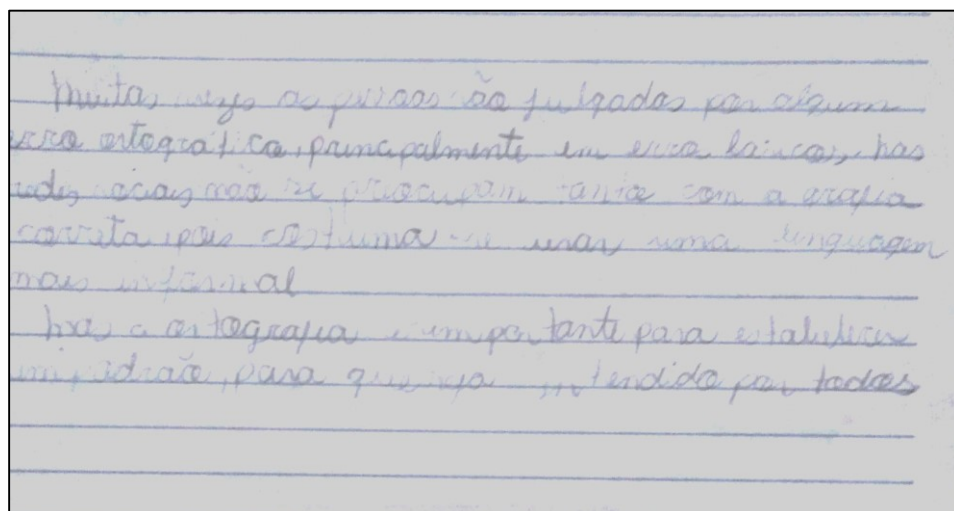 Muitas vezes as pessoas são julgadas por algum
erro ortográfico, principalmente em erro básicos, nas
redes sociais não se preocupam tanto com a grafia
correta, pois costuma-se usar uma linguagem
mais informal
mas a ortografia é importante para estabelecer
um padrão, para que seja entendido por todos